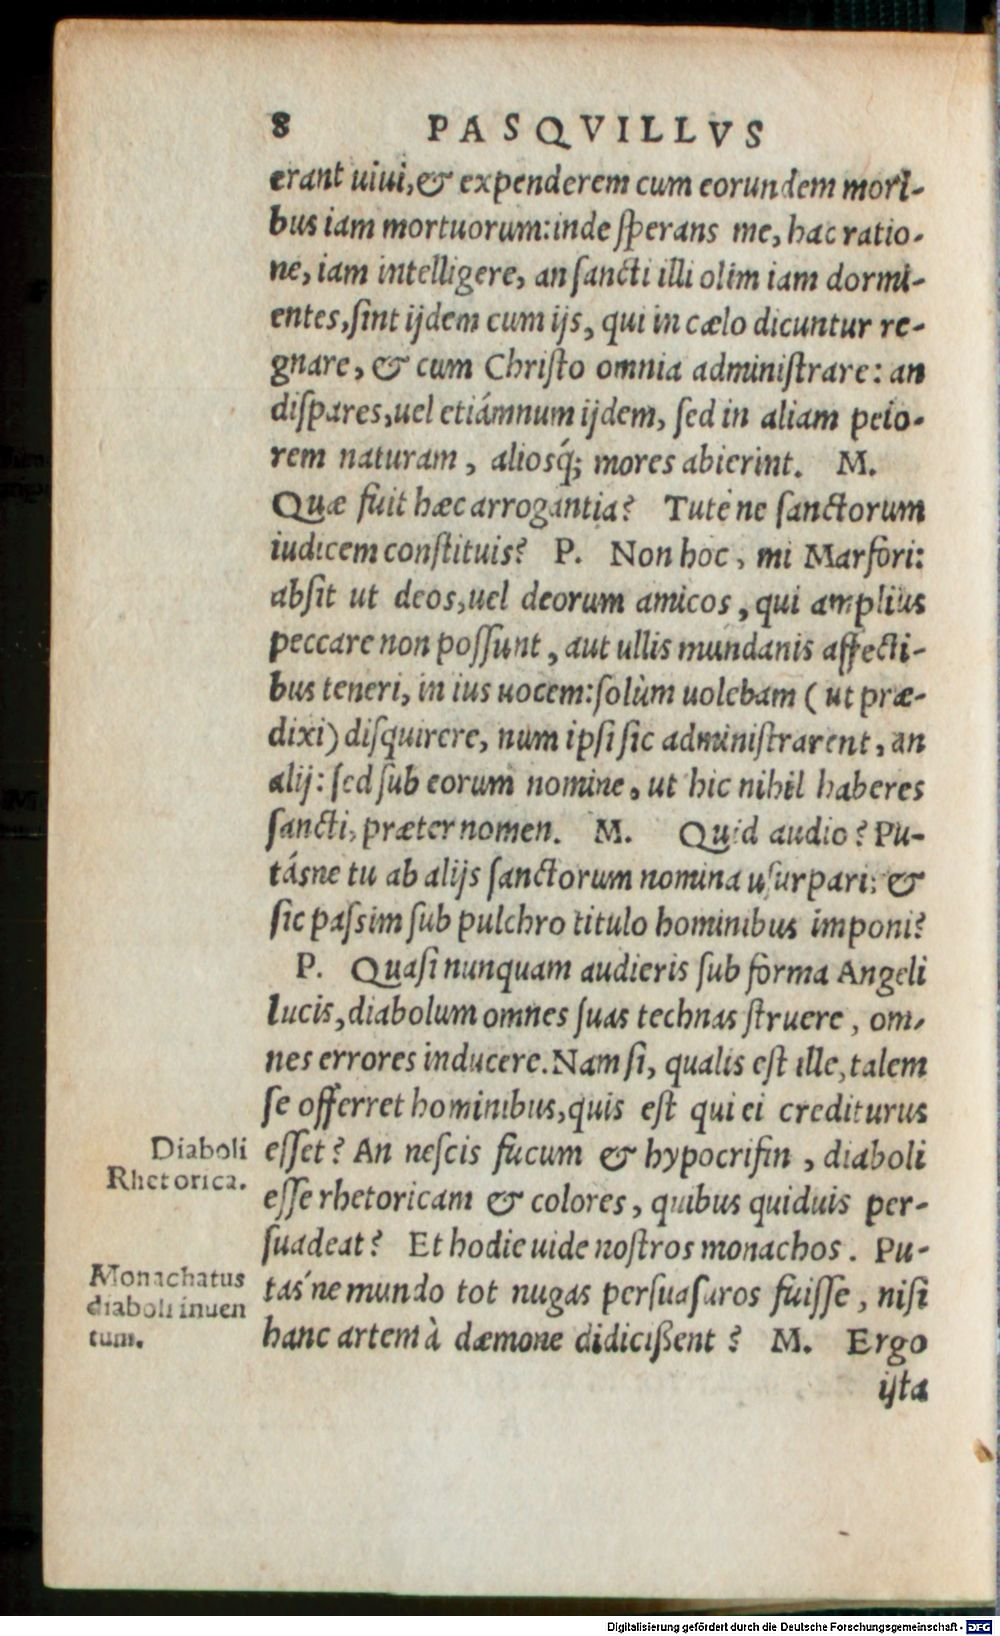 8 PASQVILLVS
erant uiui, & expenderem cum eorundem mori-
bus iam mortuorum: inde ſperans me, hac ratio-
ne, iam intelligere, an ſancti illi olim iam dormi-
entes, ſint ijdem cum ijs, qui in cælo dicuntur re-
gnare, & cum Chriſto omnia adminiſtrare: an
diſpares, uel etiámnum ijdem, ſed in aliam peio-
rem naturam, aliosq́; mores abierint. M.
Quæ fuit hæc arrogantia? Tute ne ſanctorum
iudicem conſtituis? P. Non hoc, mi Marfori:
abſit ut deos, uel deorum amicos, qui amplius
peccare non poſſunt, aut ullis mundanis affecti-
bus teneri, in ius uocem: ſolùm uolebam (ut præ-
dixi) diſquirere, num ipſi ſic adminiſtrarent, an
alij: ſed ſub eorum nomine, ut hic nihil haberes
ſancti, præter nomen. M. Quid audio? Pu-
tásne tu ab alijs ſanctorum nomina uſurpari: &
ſic paſsim ſub pulchro titulo hominibus imponi?
P. Quaſi nunquam audieris ſub forma Angeli
lucis, diabolum omnes ſuas technas ſtruere, om-
nes errores inducere. Nam ſi, qualis eſt ille, talem
ſe offerret hominibus, quis eſt qui ei crediturus
eſſet? An neſcis fucum & hypocriſin, diaboli
eſſe rhetoricam & colores, quibus quiduis per-
ſuadeat? Et hodie uide noſtros monachos. Pu-
tas'ne mundo tot nugas perſuaſuros fuiſſe, niſi
hanc artem à dæmone didicißent? M. Ergo
iſta
Diaboli
Rhetorica.
Monachatus
diaboli inuen
tum.
Digitalisierung gefördert durch die Deutsche Forschungsgemeinschaft - DFG